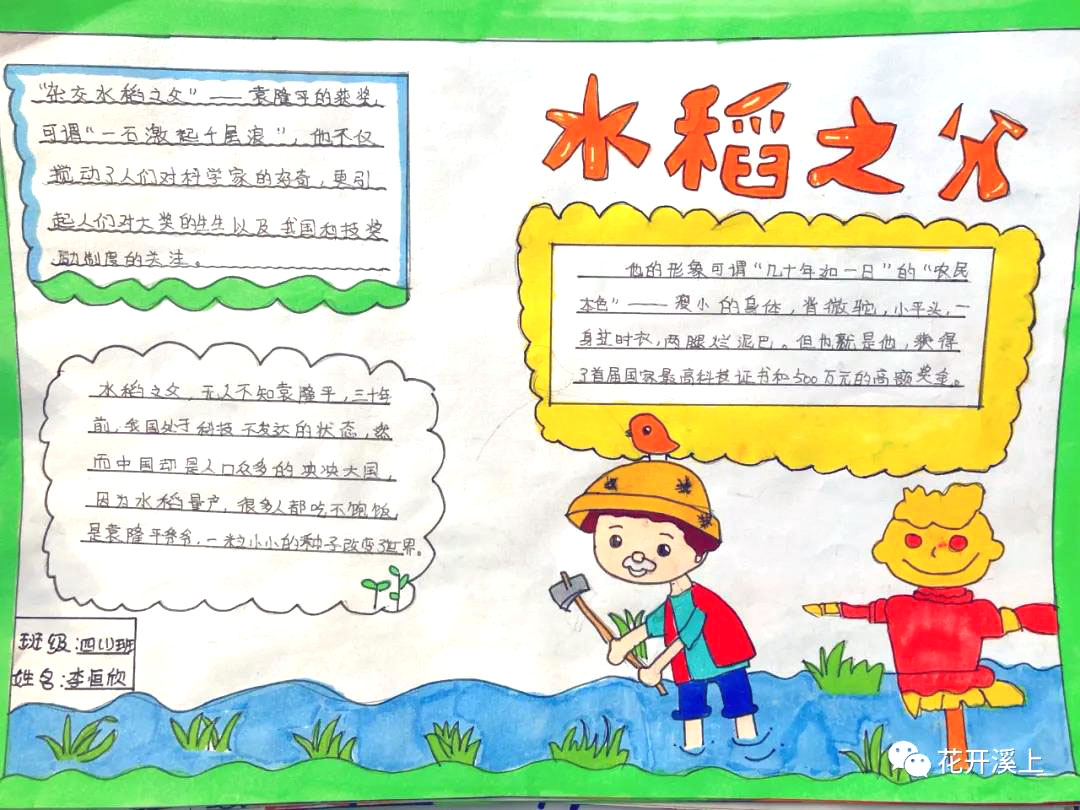 水稻之父
"杂交水稻之父"——袁隆平的获奖,
可谓"一石激起千层浪",他不仅
搅动了人们对科学家的好奇,更引
起人们对大奖的生生以及我国科技奖
励制度的关注。
他的形象可谓"几十年如一日"的"农民
本色"——瘦小的身体,背微驼,小平头,一
身过时衣,两腿烂泥巴。但也就是他,获得
了首届国家最高科技证书和500万元的高额奖金。
水稻之父,无人不知袁隆平,三十年
前,我国处于科技不发达的状态,然
而中国却是人口众多的泱泱大国,
因为水稻量产,很多人都吃不饱饭
是袁隆平爷爷,一粒小小的种子改变了世界。
班级:四(1)班
姓名:李恒欣
花开溪上